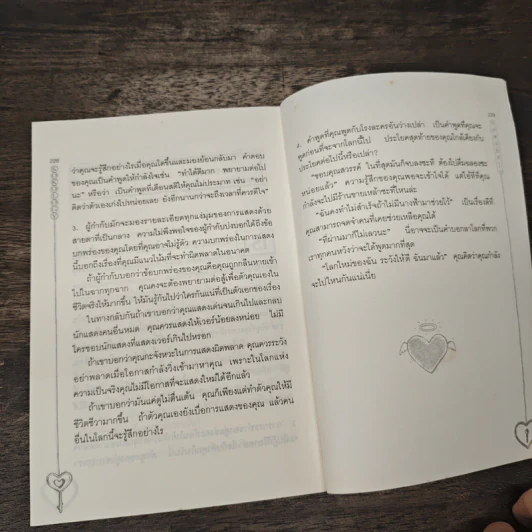 ว่าคุณจะรู้สึกอย่างไรเมื่อคุณโตขึ้นและมองย้อนกลับมา คำตอบ
ของคุณเป็นคำพูดให้กำลังใจเช่น “ทำได้ดีมาก พยายามต่อไป
นะ” หรือว่า เป็นคำพูดที่เตือนสติให้คุณไม่ประมาท เช่น “อย่า
คิดว่าตัวเองเก่งไปหน่อยเลย ยังอีกนานกว่าจะถึงเวลาที่ควรดีใจ”
3. ผู้กำกับมักจะมองรายละเอียดทุกแง่มุมของการแสดงด้วย
สายตาที่เป็นกลาง ความไม่พึงพอใจของผู้กำกับบ่งบอกได้ถึงข้อ
บกพร่องของคุณโดยที่คุณอาจไม่รู้ตัว ความบกพร่องในการแสดง
นี้บอกถึงเรื่องที่คุณมีแนวโน้มที่จะทำผิดพลาดในอนาคต
ถ้าผู้กำกับบอกว่าข้อบกพร่องของคุณคือคุณถูกกลืนหายเข้า
ไปในฉากทุกฉาก คุณจะต้องพยายามต่อสู้เพื่อตัวคุณเองใน
ชีวิตจริงให้มากขึ้น ให้มันรู้กันไปว่าใครกันแน่ที่เป็นตัวเอกของเรื่อง
ในทางกลับกันถ้าเขาบอกว่าคุณแสดงเด่นจนเกินไปและกลบ
นักแสดงคนอื่นหมด คุณควรแสดงให้เวอร์น้อยลงหน่อย ไม่มี
ใครชอบนักแสดงที่แสดงเวอร์เกินไปหรอก
ถ้าเขาบอกว่าคุณกะจังหวะในการแสดงผิดพลาด คุณควรระวัง
อย่าพลาดเมื่อโอกาสกำลังวิ่งเข้ามาหาคุณ เพราะในโลกแห่ง
ความเป็นจริงคุณไม่มีโอกาสที่จะแสดงใหม่ได้อีกแล้ว
ถ้าเขาบอกว่ามันแค่ดูไม่ตื่นเต้น คุณก็เพียงแต่ทำตัวคุณให้มี
ชีวิตชีวามากขึ้น ถ้าตัวคุณเองยังเบื่อการแสดงของคุณ แล้วคน
อื่นในโลกนี้จะรู้สึกอย่างไร
4. คำพูดที่คุณพูดกับโรงละครอันว่างเปล่า เป็นคำพูดที่คุณจะ
พูดก่อนที่จะจากโลกนี้ไป ประโยคสุดท้ายของคุณใกล้เคียงกับ
ประโยคต่อไปนี้หรือเปล่า?
“ขอบคุณสวรรค์ ในที่สุดมันก็จบลงซะที ต้องไปดื่มฉลองซะ
หน่อยแล้ว” ความรู้สึกของคุณพอจะเข้าใจได้ แต่ไอ้ที่ที่คุณ
กำลังจะไปมีร้านขายเหล้าซะที่ไหนล่ะ
“ฉันคงทำไม่สำเร็จถ้าไม่มีนางฟ้ามาช่วยไว้” เป็นเรื่องดีที่
คุณสามารถจดจำคนที่เคยช่วยเหลือคุณได้
“ที่ผ่านมาก็ไม่เลวนะ” นี่อาจจะเป็นคำบอกลาโลกที่พวก
เราทุกคนหวังว่าจะได้พูดมากที่สุด
“โลกใหม่ของฉัน ระวังให้ดี ฉันมาแล้ว” คุณคิดว่าคุณกำลัง
จะไปไหนกันแน่เนี่ย